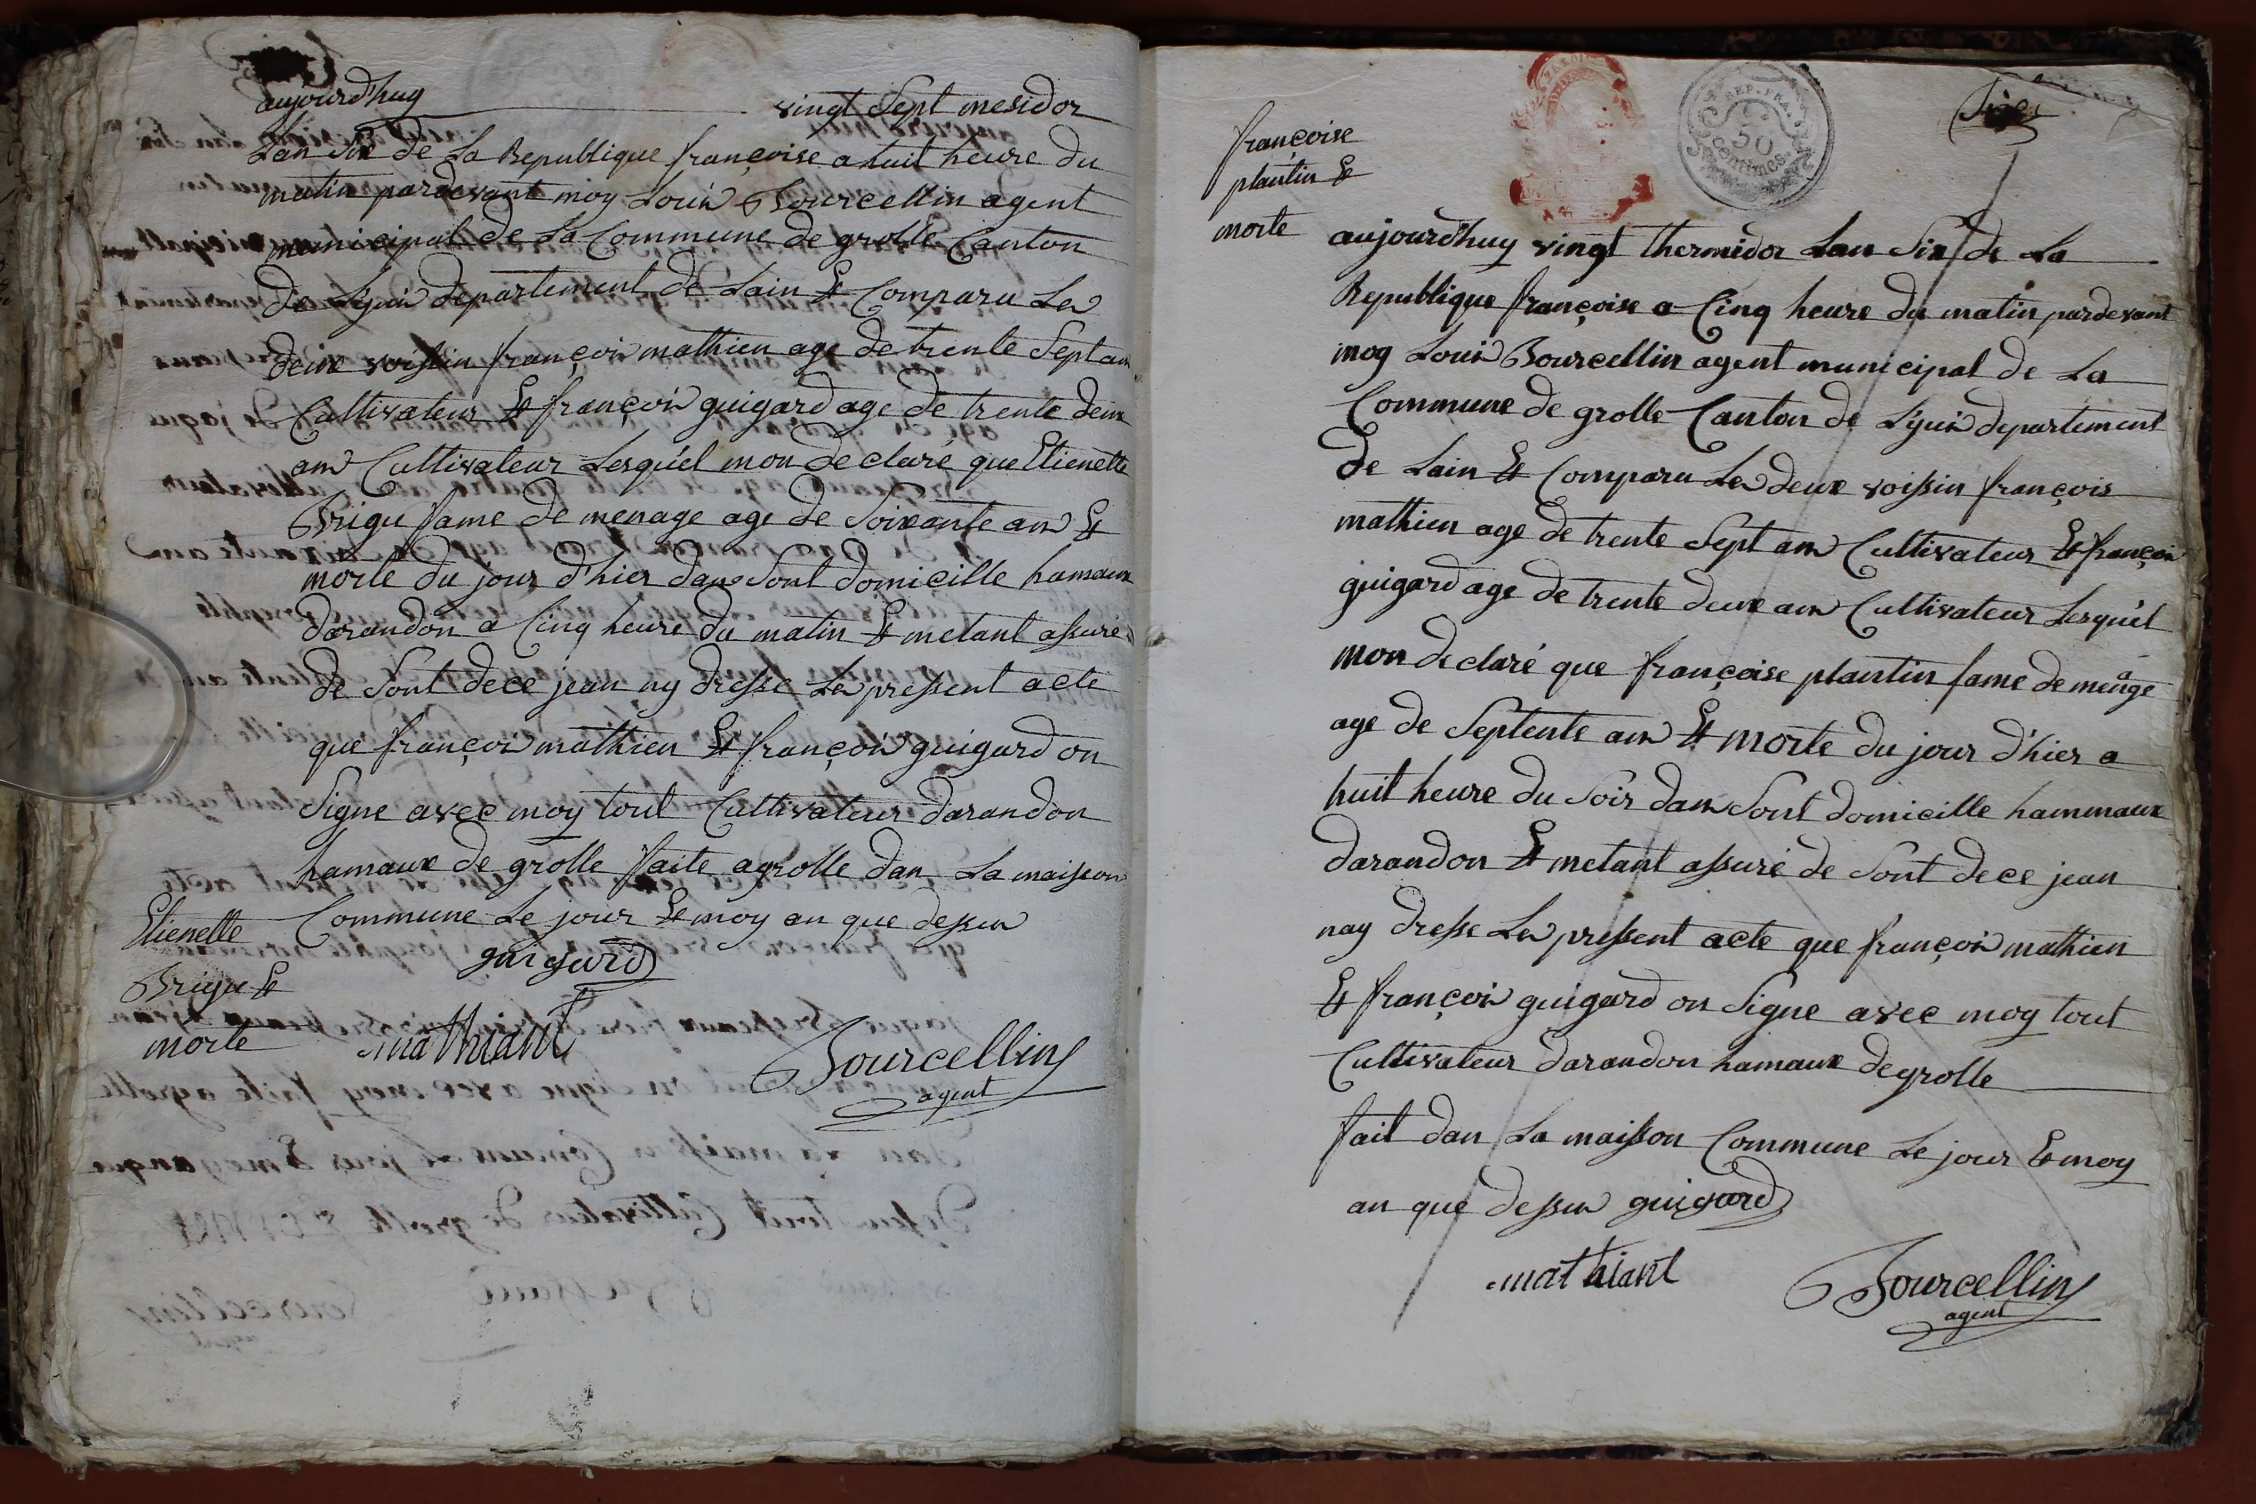 aujourd'huy vingt Sept mesidor
Lan Six de La Republique françoise a huit heure du
matin pardevant moy Louis Bourcellin agent
municipal de La Commune de grolle Canton
de Lyuis departement de Lain Et Comparu Les
deux voissin françois mathieu age de trente Sept ans
Cultivateur Et françois guigard age de trente deux
ans Cultivateur Lesquel mon declaré que Etienette
Brigu fame de menage age de Soixante ans Et
morte du jour d'hier dans Sont domicille hamaux
darandon a Cinq heure du matin Et metant assuré
de Sont dece jean ay dresse Les pressent acte
que françois mathieu Et françois guigard on
Signe avec moy tout Cultivateur darandon
hamaux de grolle faite agrolle dan La maisson
Commune Le jour Et moy an que dessus
Etienette
Brigu Et
morte
guigard
mathiant
Bourcellin
agent
françoise
plantin Et
morte
REP. FRA.
50
centimes
aujourd'huy vingt thermidor Lan Six de La
Republique françoise a Cinq heure du matin pardevant
moy Louis Bourcellin agent municipal de La
Commune de grolle Canton de Lyuis departement
de Lain Et Comparu Les deux voissin françois
mathieu age de trente Sept ans Cultivateur Et françois
guigard age de trente deux ans Cultivateur Lesquel
mon declaré que françoise plantin fame de menage
age de Septente ans Et morte du jour d'hier a
huit heure du Soir dans Sont domicille hammaux
darandon Et metant assuré de Sont dece jean
nay dresse Les pressent acte que françois mathieu
Et françois guigard on Signe avec moy tout
Cultivateur darandon hamaux de grolle
fait dan La maisson Commune Le jour Et moy
an que dessus guigard
mathiant
Bourcellin
agent